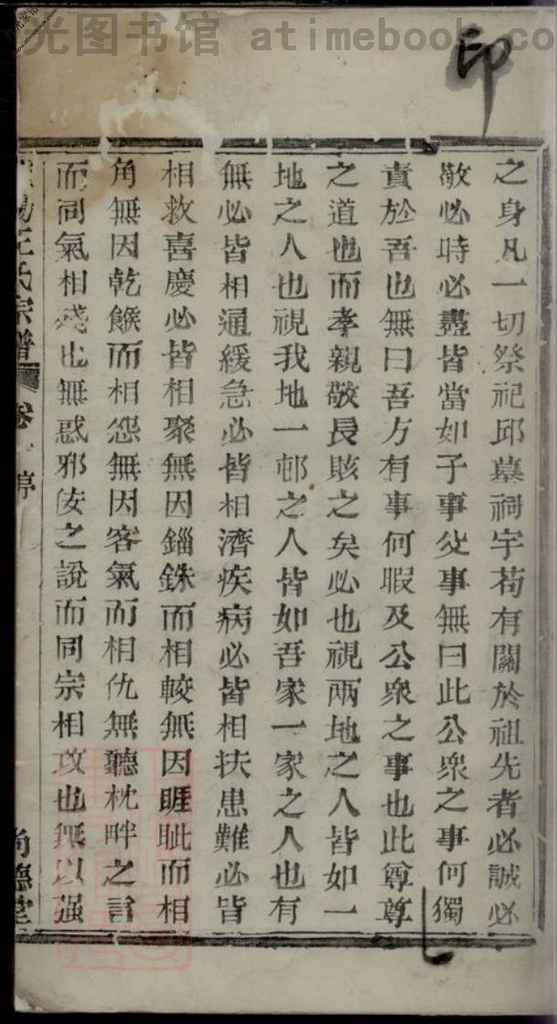 光图书馆 atimebook.co
印
之身凡一切祭祀邱墓祠宇苟有關於祖先者必誠必
敬必時必盡皆當如子事父事無曰此公衆之事何獨
責於吾也無曰吾方有事何暇及公衆之事也此尊尊
之道也而孝親敬長賅之矣必也視兩地之人皆如一
地之人也視我地一邨之人皆如吾家一家之人也有
無必皆相通緩急必皆相濟疾病必皆相扶患難必皆
相救喜慶必皆相聚無因錙銖而相較無因睚眦而相
角無因乾餱而相怨無因客氣而相仇無聽枕畔之言
而同氣相殘也無惑邪佞之說而同宗相攻也無以强
王氏宗譜 卷一 序 尚德堂